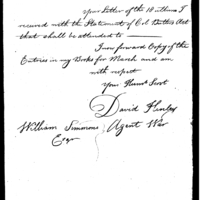 your Letter of the 10 ultimo I
received with the Statement of Col Butlers Act
that shall be attended to —
I now forward Copy of the
Entries in my Books for March and am
with respect
your Humbl Servt
David Henley
William Simmons Agent War
Esqr